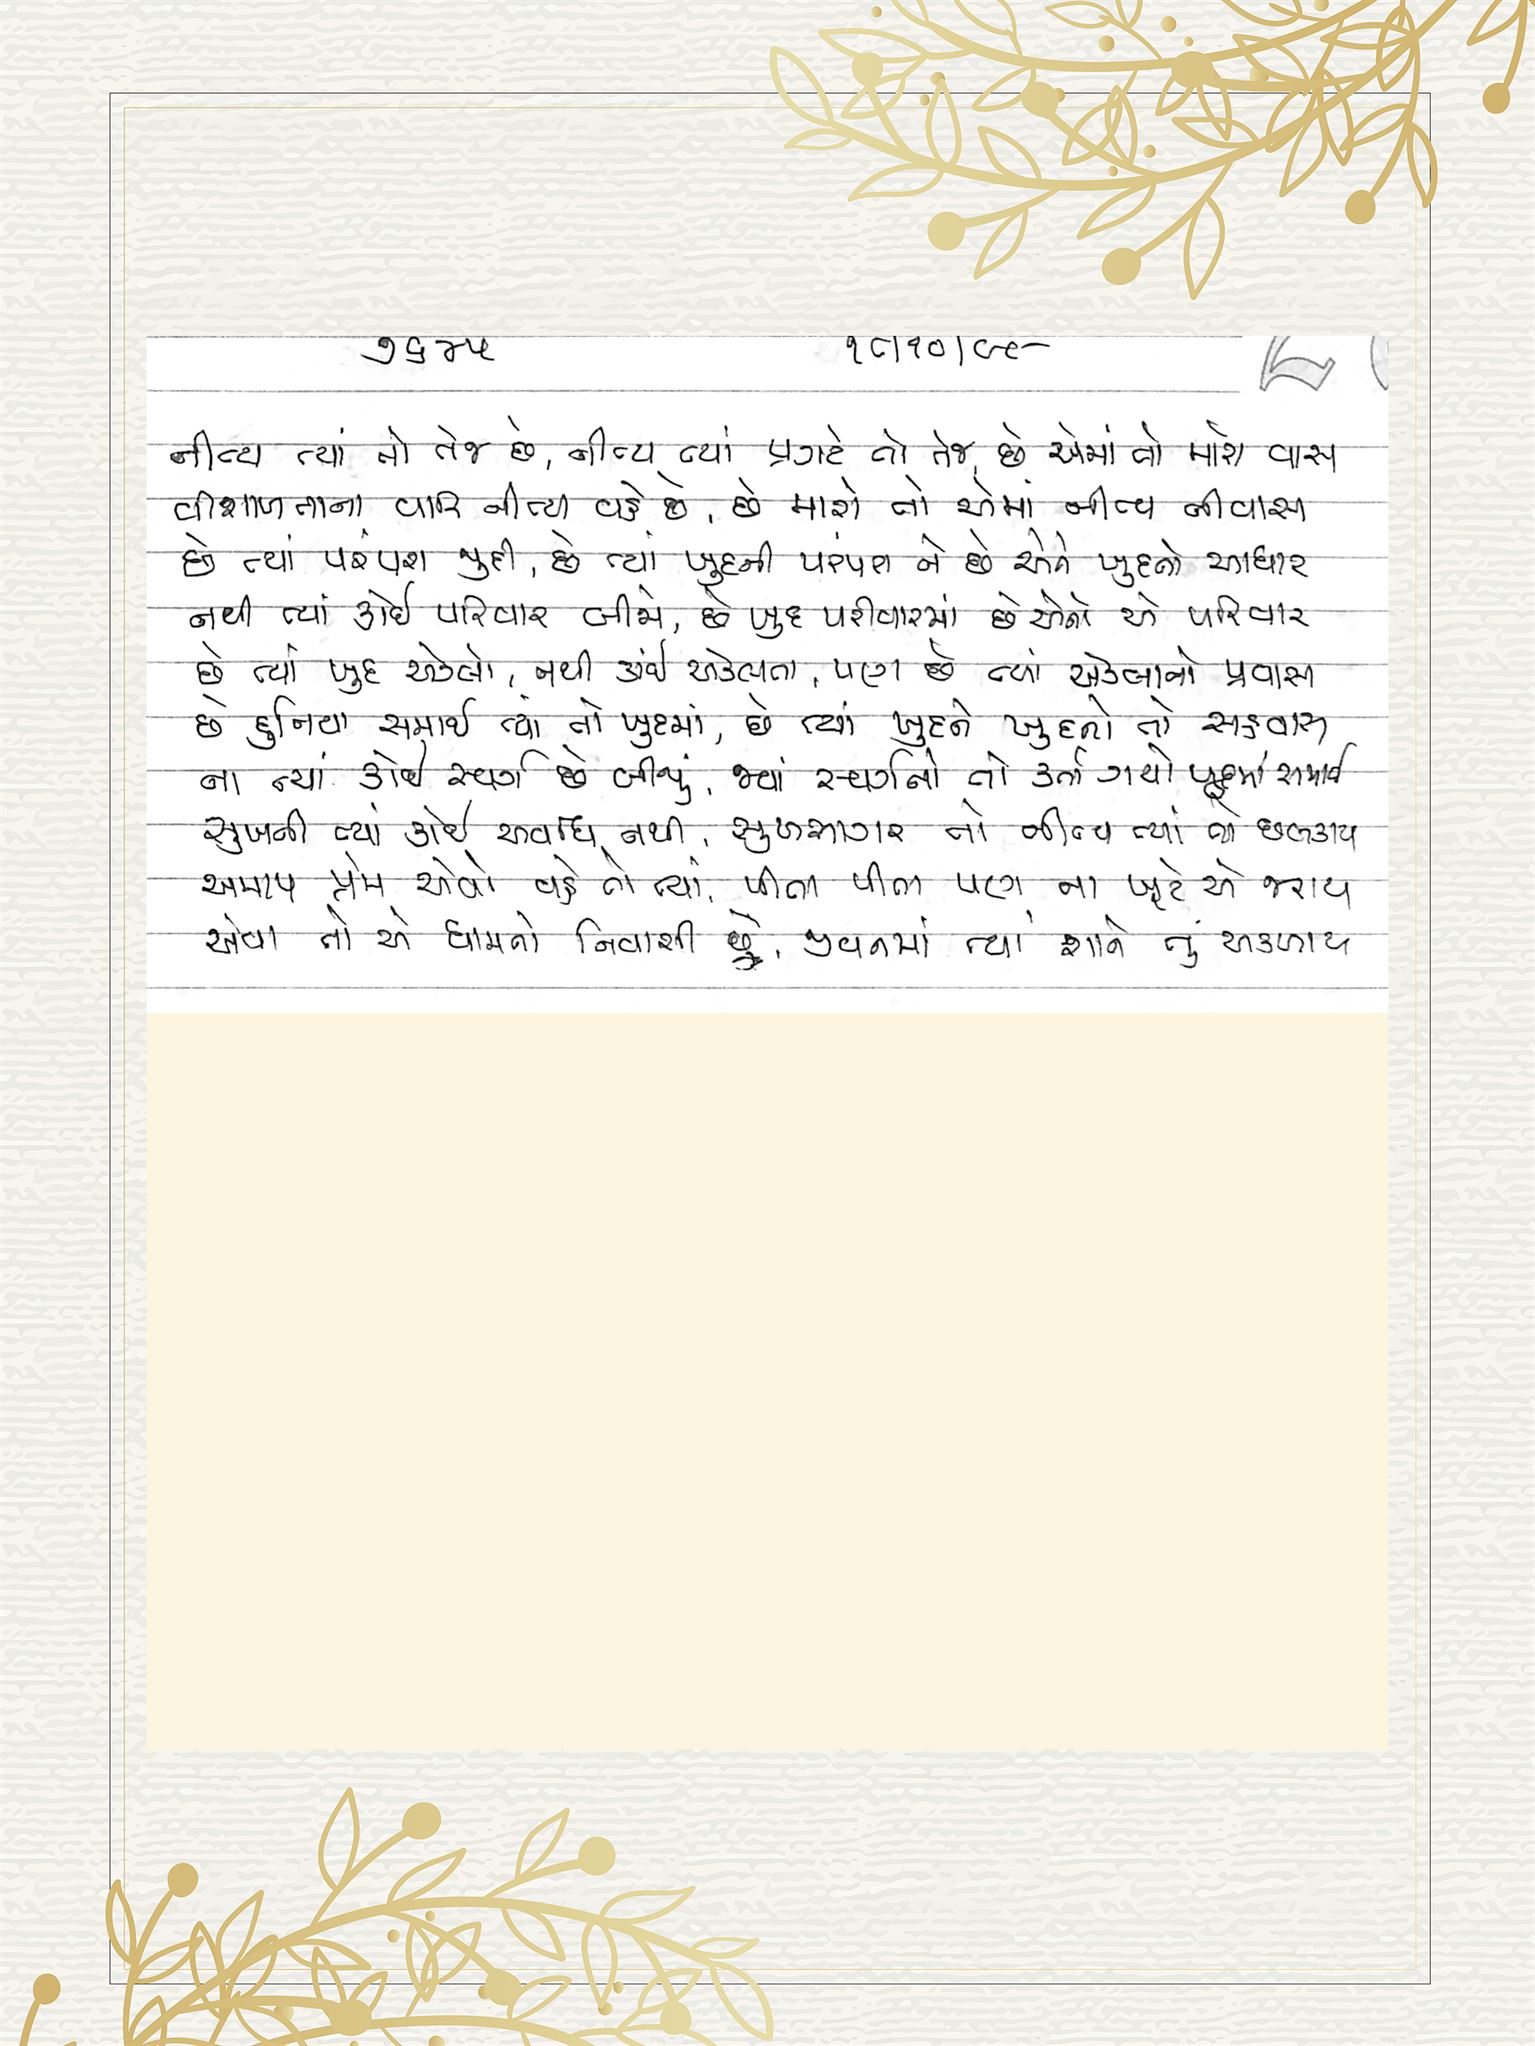 ૭૬૪૫ ૧૮/૧૦/૯૮
નીત્ય ત્યાં તો તેજ છે, નીત્ય ત્યાં પ્રગટે તો તેજ, છે એમાં તો મારો વાસ
વીશાળતાના વારિ નીત્ય વહે છે, છે મારો તો એમાં નીત્ય નીવાસ
છે ત્યાં પરંપરા જુદી, છે ત્યાં ખુદની પરંપરા ને છે એને ખુદનો આધાર
નથી ત્યાં કોઈ પરિવાર બીજો, છે ખુદ પરીવારમાં છે એનો એ પરિવાર
છે ત્યાં ખુદ એકલો, નથી કાંઈ એકલતા, પણ છે ત્યાં એકલાનો પ્રવાસ
છે દુનિયા સમાઈ ત્યાં તો ખુદમાં, છે ત્યાં ખુદને ખુદનો તો સહવાસ
ના ત્યાં કોઈ સ્વર્ગ છે બીજું, જ્યાં સ્વર્ગનો તો કર્તા ગયો ખુદમાં સમાઈ
સુખની ત્યાં કોઈ અવધિ નથી, સુખસાગર તો નીત્ય ત્યાં જે છલકાય
અમાપ પ્રેમ એવો વહે તો ત્યાં, પીતા પીતા પણ ના ખૂટે એ જરાય
એવા તો એ ધામનો નિવાસી છું, જીવનમાં ત્યાં શાને તું અકળાય